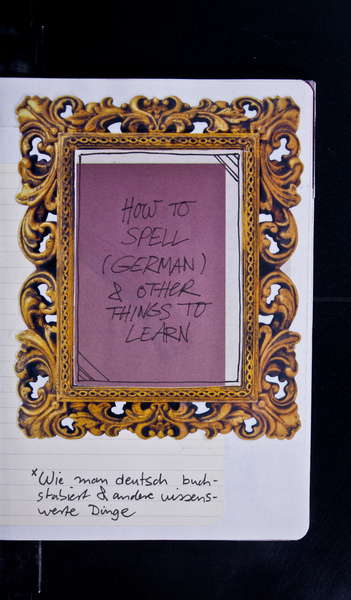 HOW TO
SPELL
(GERMAN)
& OTHER
THINGS TO
LEARN
*Wie man deutsch buch-
stabiert & andere wissens-
werte Dinge